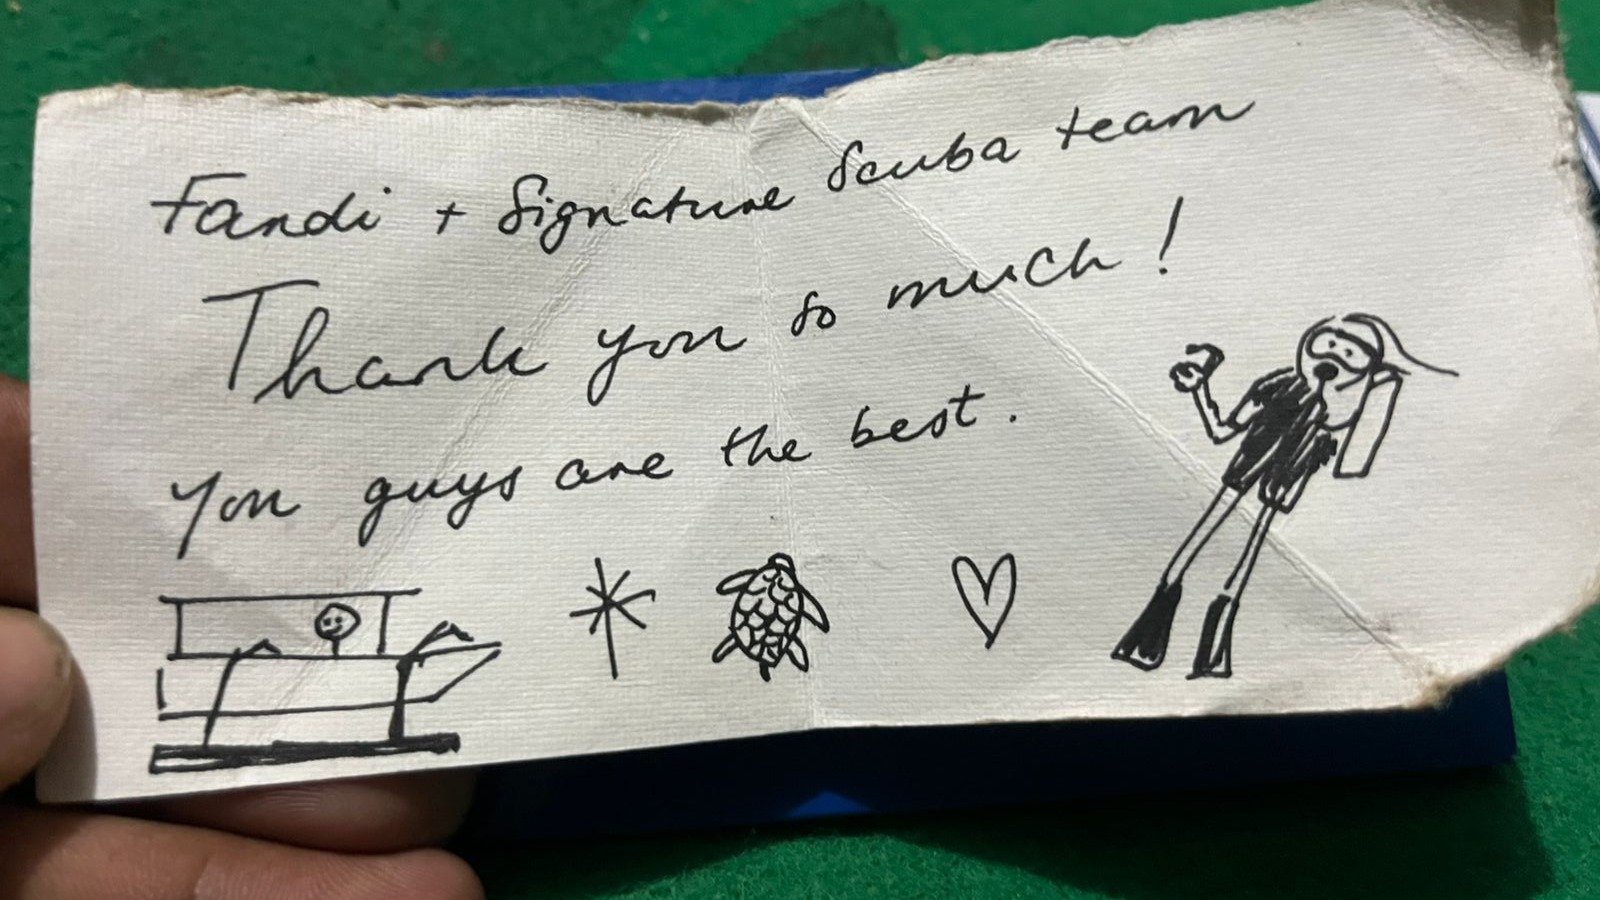 Fandi + Signature Scuba team
Thank you so much!
You guys are the best.